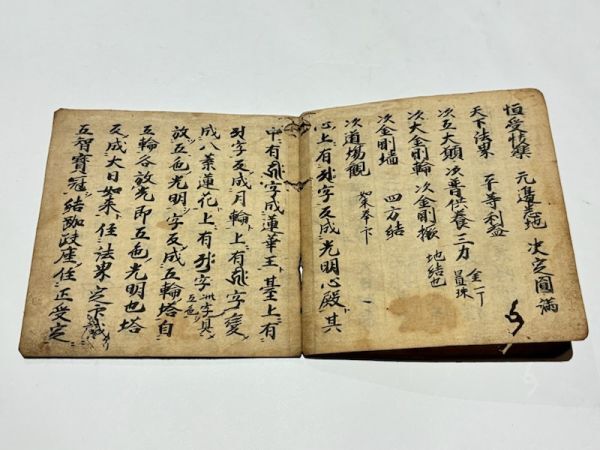 恒受快樂 決定圓満
天下法界 平等利益
次五大願 次普供養三力 金一丁
次大金剛輪 次金剛橛 地結也
次金剛墻 四方結
次道場觀 如來拳印
心上有字反成光明心殿其
中有字成蓮華王臺上有
字反成月輪上有字變
成八葉蓮花上有字此字具五色
放五色光明字反成五輪塔自
五輪各放光即五色光明也塔
反成大日如來住法界定
五智寶冠結跏趺座住正受定